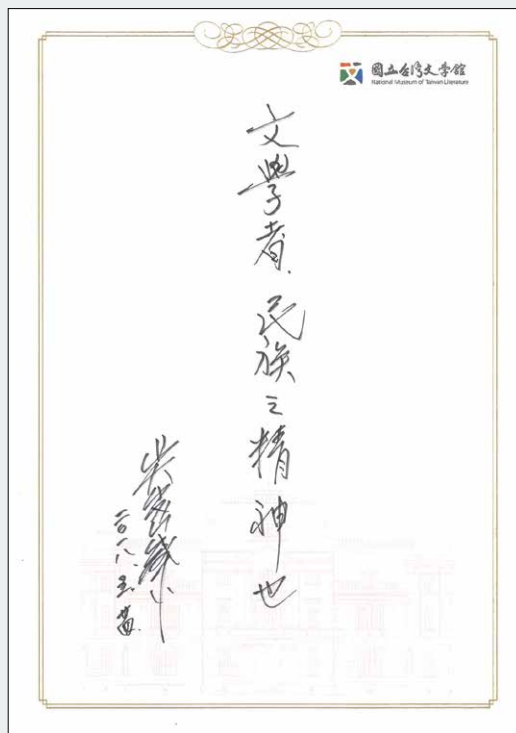 國立台灣文學館
National Museum of Taiwan Literature
文學者、民族之精神也
二〇一八、